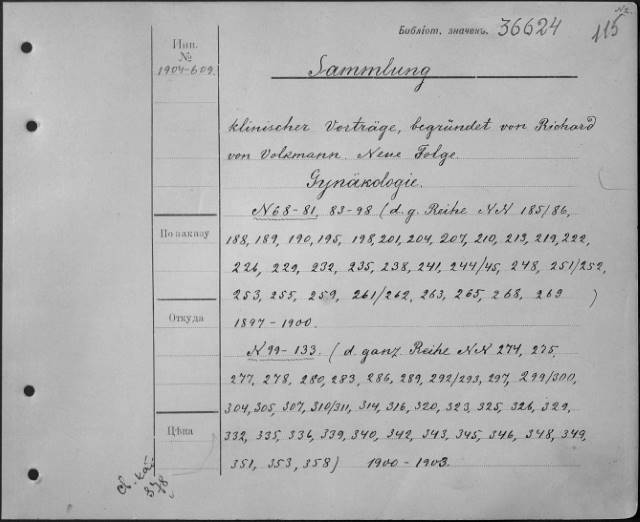 Библіот. значекъ. 36624
№ 115
Инв.
№
1904-609.
Sammlung
klinischer Vorträge, begründet von Richard
von Volkmann. Neue Folge.
Gynäkologie.
N 68-81, 83-98 (d. g. Reihe NN 185/86,
По заказу
188, 189, 190, 195, 198, 201, 204, 207, 210, 213, 219, 222,
226, 229, 232, 235, 238, 241, 244/45, 248, 251/252,
253, 255, 259, 261/262, 263, 265, 268, 269 )
Откуда
1897-1900.
N 99-133. (d. ganz. Reihe NN 274, 275,
277, 278, 280, 283, 286, 289, 292/293, 297, 299/300,
304, 305, 307, 310/311, 314, 316, 320, 323, 325, 326, 329,
Цѣна
332, 335, 336, 339, 340, 342, 343, 345, 346, 348, 349,
351, 353, 358) 1900-1903.